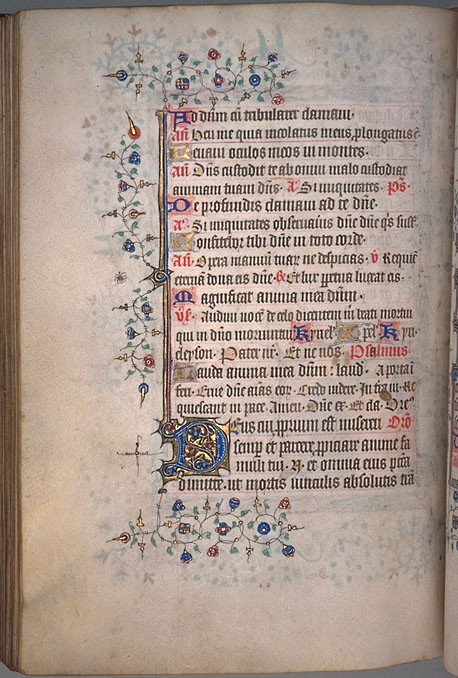 Ad dñm cũ tribularer clamaui.
Añ Heu me quia incolatus meus, plongatus ẽ
Leuaui oculos meos in montes.
Añ Dñs custodit te ab omni malo custodiat
animam tuam dñs. A Si iniquitates. Ps.
De profundis clamaui ad te dñe.
A Si iniquitates obseruauis dñe dñe qs sust̃.
Confitebor tibi dñe in toto corde.
Añ Opera manuũ tuaꝝ ne despicias. V Requiẽ
eternã dona eis dñe. & lux ppetua luceat eis.
Magnificat anima mea dñm.
Audiui uocẽ de celo dicentem in. beati mortui
qui in dño moriuntur. Kyriel. Xpel. Kyri
eleyson. Pater nr̃. Et ne nos. Psalmus
Lauda anima mea dñm: laud. A porta ĩ
feri. Erue dñe aĩas eoꝝ. Credo uidere. In tra ui. Re
quiescant in pace. Amen. Dñe ex. Et cla. Ore
Deus cui ppriũ est misereri Oro
semp et parcere, ppiciare anime fa
muli tui. N. et omnia eius pctã
dimitte. ut mortis uinculis absolutis trã